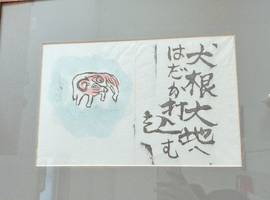 犬根大地へ
はだか打
込む